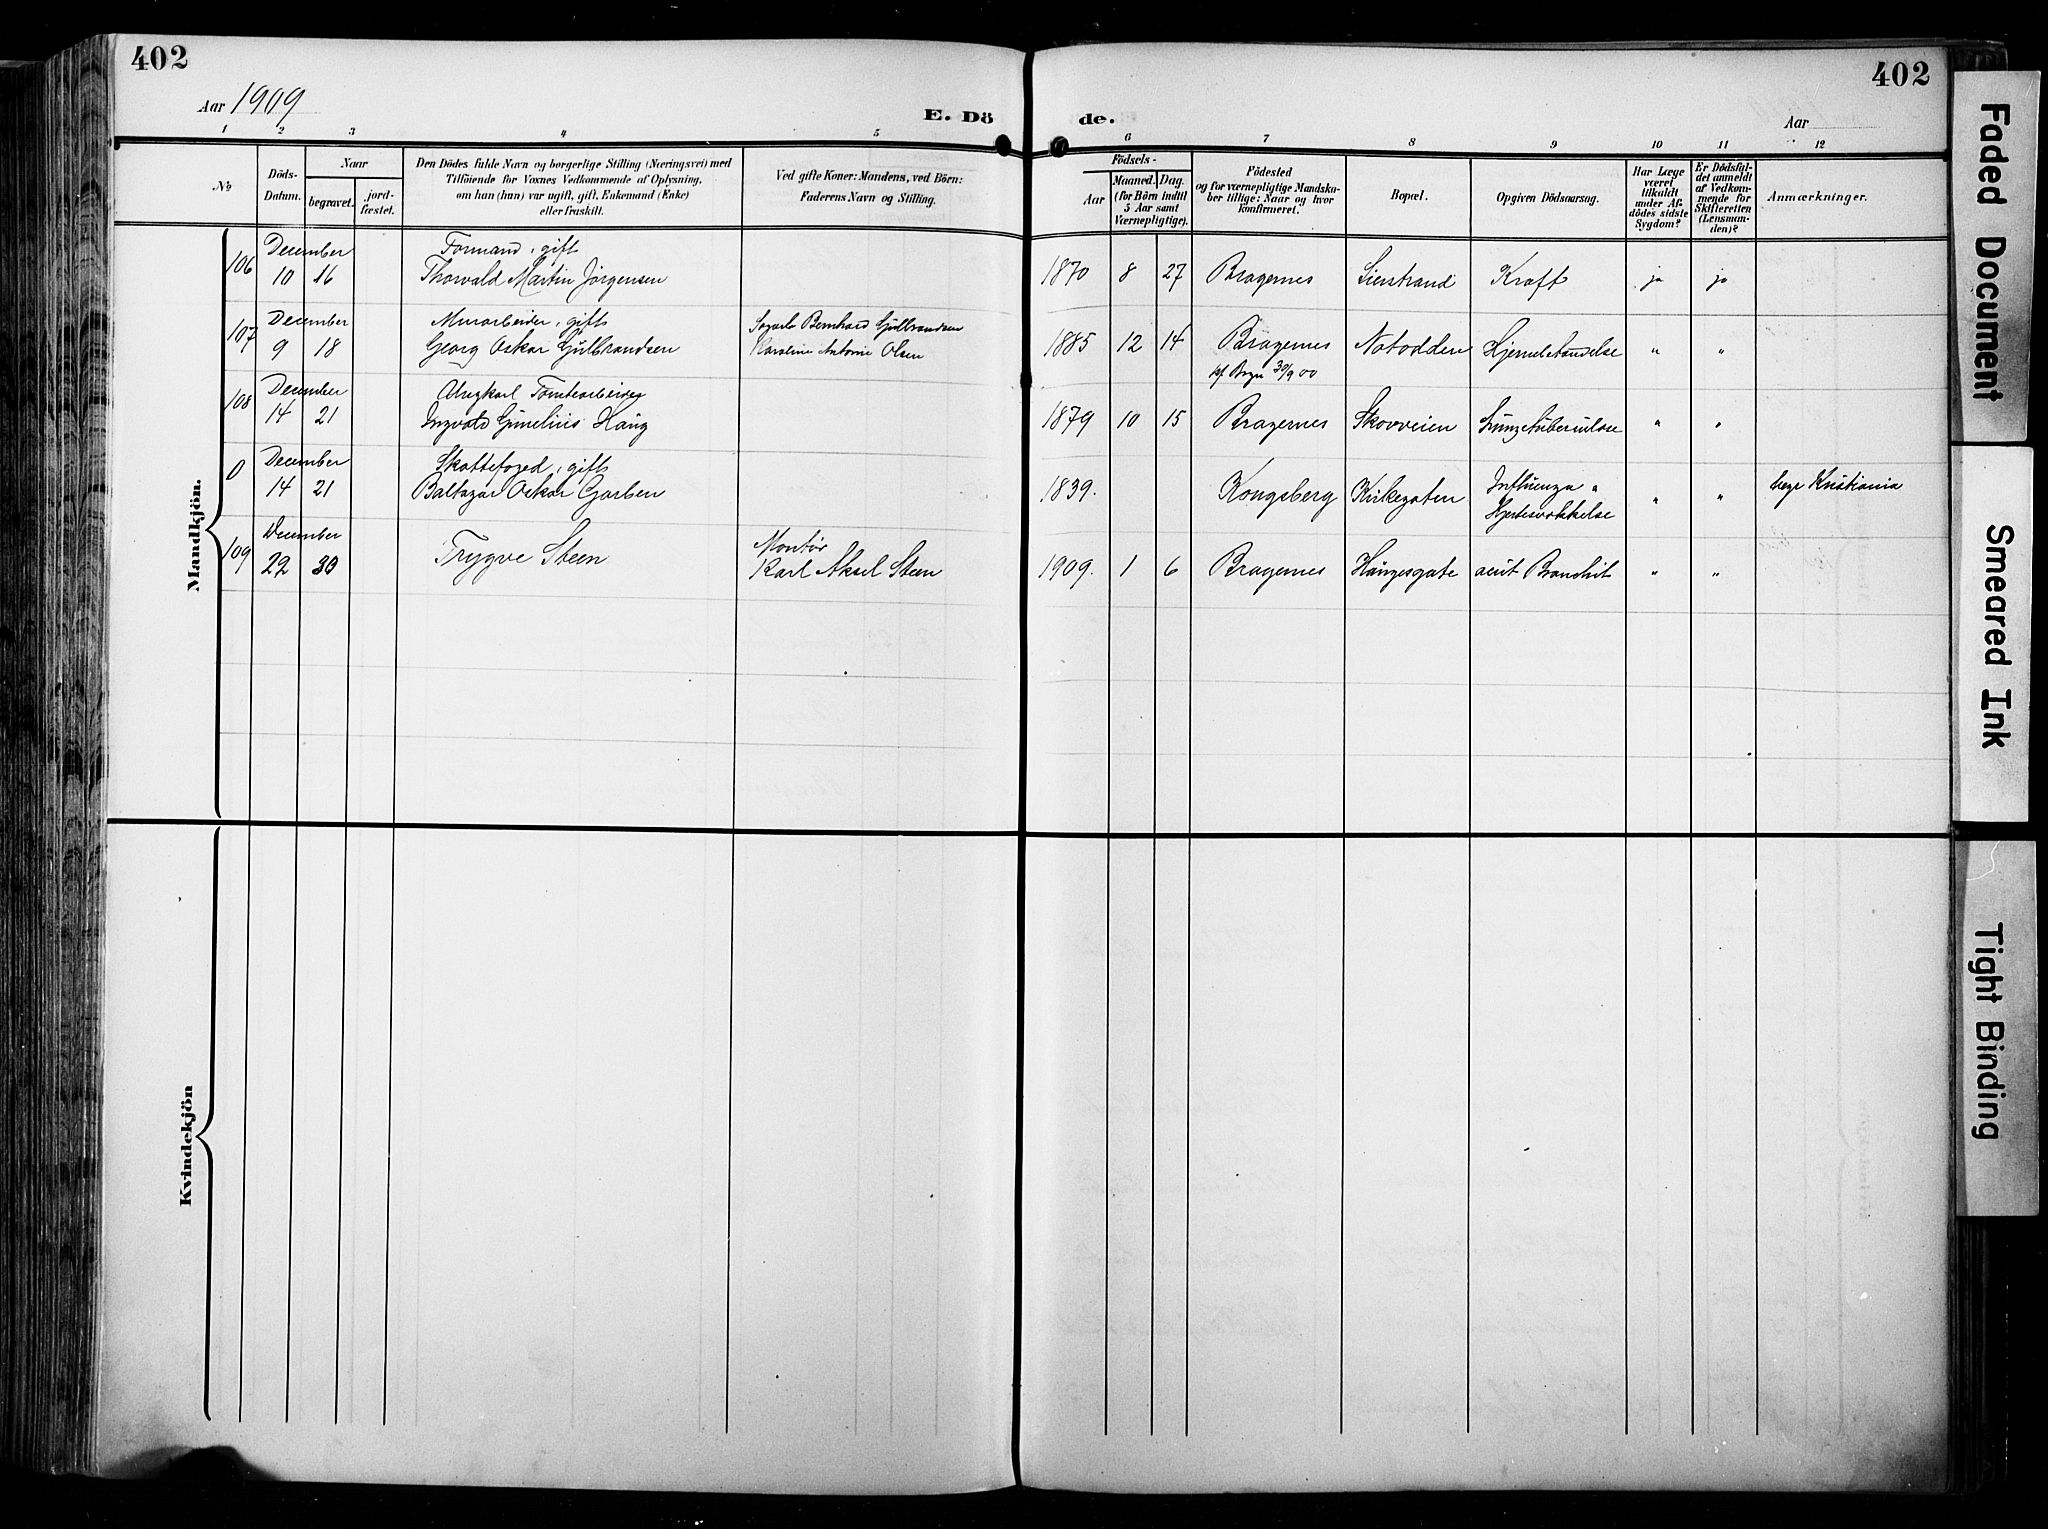 402
402
Aar 1909
E. Dö
de.
Aar
1 2 3 4 5 6 7 8 9 10 11 12
No
Döds-
Datum.
Naar
begravet.
jord-
fæstet.
Den Dödes fulde Navn og borgerlige Stilling (Næringsvei) med
Tilföiende for Voxnes Vedkommende af Oplysning,
om han (hun) var ugift, gift, Enkemand (Enke)
eller fraskilt.
Ved gifte Koner: Mandens, ved Börn:
Faderens Navn og Stilling.
Födsels-
Aar
Maaned. Dag.
(for Börn indtil
5 Aar samt
Værnepligtige).
Födested
og for værnepligtige Mandska-
ber tillige: Naar og hvor
konfirmeret.
Bopæl.
Opgiven Dödsaarsag.
Har Læge
været
tilkaldt
under Af-
dödes sidste
Sygdom?
Er Dödsfal-
det anmeldt
af Vedkom-
mende for
Skifteretten
(Lensman-
den)?
Anmærkninger.
Mandkjön.
106 December Formand, gift
10 16 Thorvald Martin Jörgensen 1870 8 27 Bragernes Lierstrand Kræft ja ja
107 December Murarbeider, gift Bernhard Gulbrandsen
9 18 Georg Oskar Gulbrandsen Karoline Antonie Olsen 1885 12 14 Bragernes Notodden " "
kf Brgn 30/9 00
108 December Ungkarl Tomtearbeider
14 21 Ingvald Haug 1879 10 15 Bragernes Skovveien Lungetuberculose " "
0 December Skattefoged, gift
14 21 Baltazar Oskar Garben 1839. Kongsberg Kirkegaten Influenza " " " begr Kristiania
Hjertesvækkelse
109 December Montør
22 30 Trygve Steen Karl Aksel Steen 1909. 1 6 Bragernes Haugesgate acut Bronchit " "
Kvindekjön
Faded Document
Smeared Ink
Tight Binding